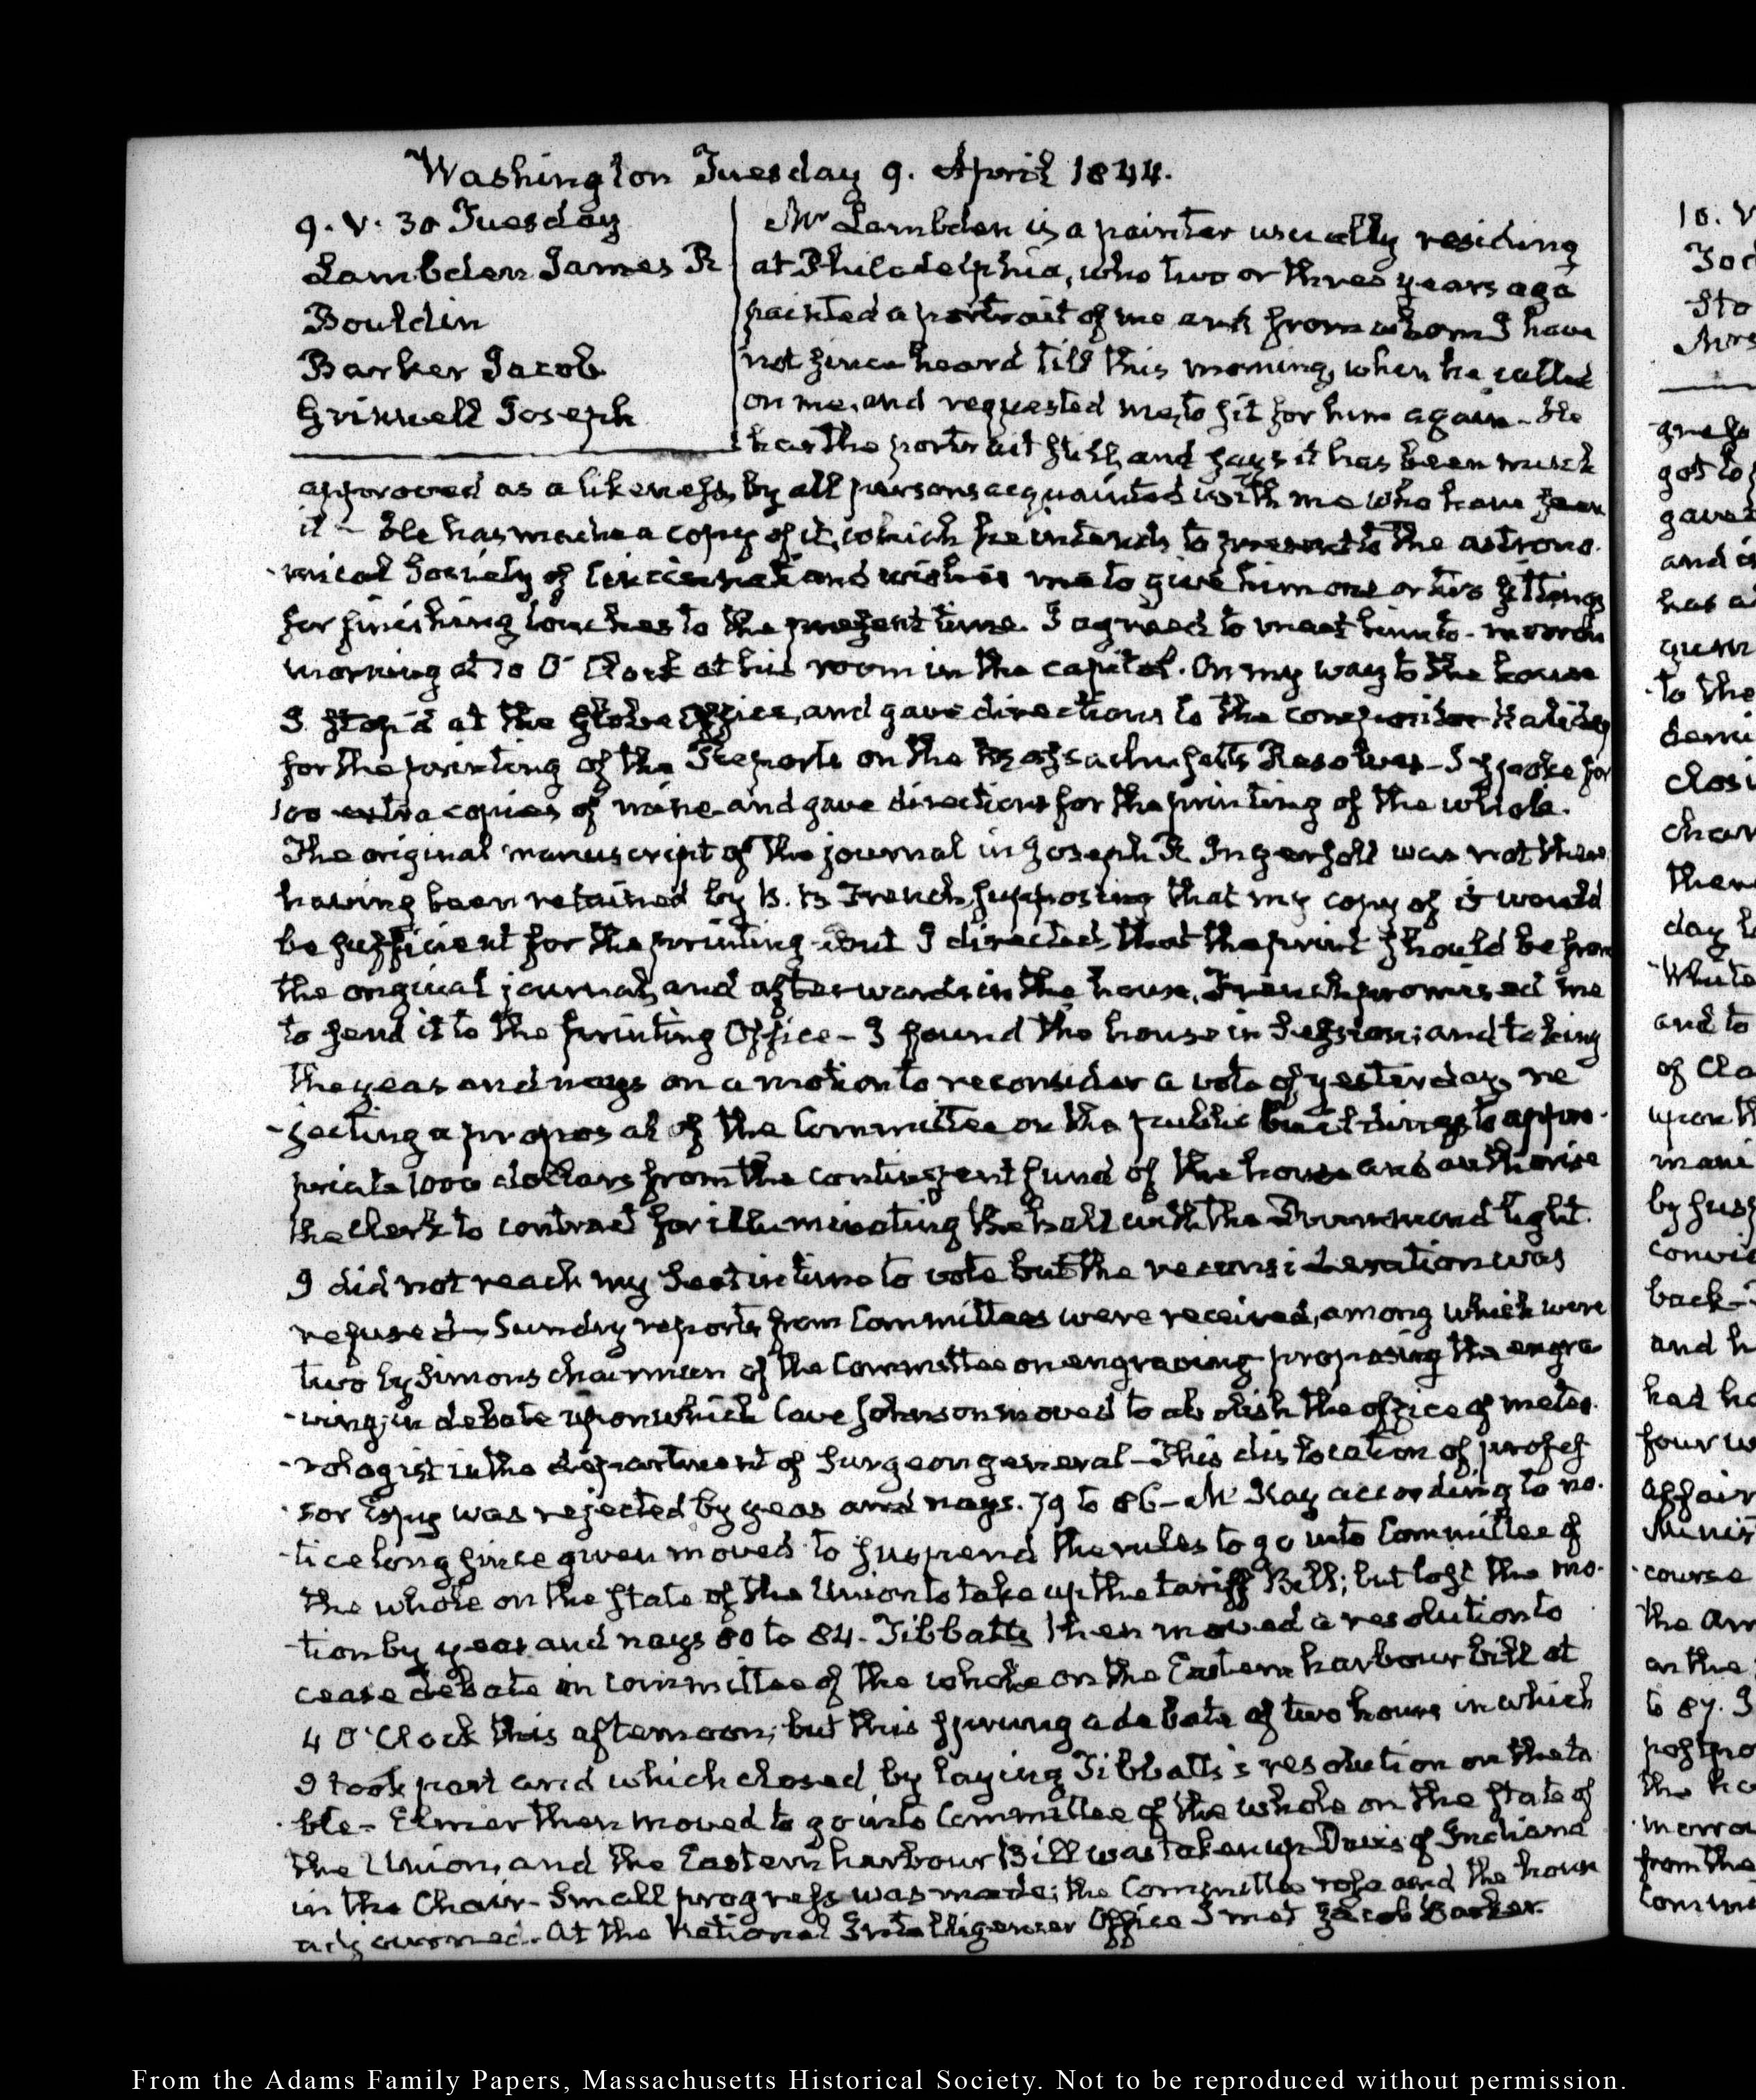 Washington Tuesday 9. April 1844.
9. V. 30 Tuesday
Lambden James R
Bouldin
Barker Jacob
Grinnell Joseph
Mr Lambden is a painter usually residing
at Philadelphia, who two or three years ago
painted a portrait of me and from whom I have
not since heard till this morning, when he called
on me, and requested me, to sit for him again. He
has the portrait still, and says it has been much
approved as a likeness, by all persons acquainted with me who have seen
it – He has made a copy of it, which he intends to present to the astrono-
-mical Society of Cincinnati and wishes me to give him one or two sittings
for finishing touches to the present time. I agreed to meet him to-morrow
morning at 10 O'Clock at his room in the capitol. On my way to the house
I stop'd at the Globe Office, and gave directions to the compositor
for the printing of the Reports on the Massachusetts Resolves – I spoke for
100 extra copies of mine and gave directions for the printing of the whole.
The original manuscript of the journal in Joseph R. Ingersoll was not there
having been retained by B. B French, supposing that my copy of it would
be sufficient for the printing but I directed that the print should be from
the original journal, and afterwards in the house, French promised me
to send it to the printing Office – I found the house in Session; and taking
the yeas and nays on a motion to reconsider a vote of yesterday, re
-jecting a proposal of the Committee on the public buildings to appro-
priate 1000 dollars from the contingent fund of the house and authorise
the clerk to contract for illuminating the hall with the Drummond light.
I did not reach my Seat in time to vote but the reconsideration was
refused – Sundry reports from Committees were received, among which were
two by Simons chairman of the Committee on engraving proposing the engra-
-ving; in debate upon which Cave Johnson moved to abolish the office of meteo-
-rologist in the department of Surgeon general – This dislocation of profes
-sor Espy was rejected by yeas and nays. 79 to 86 – Mc Kay according to no-
-tice long since given moved to suspend the rules to go into Committee of
the whole on the state of the Union to take up the tariff Bill; but lost the mo-
-tion by yeas and nays 80 to 84. Tibbatts then moved a resolution to
cease debate in committee of the whole on the Eastern harbour bill at
4 O'Clock this afternoon; but this sprung a debate of two hours in which
I took part and which closed by laying Tibbatts's resolution on the ta
-ble – Elmer then moved to go into Committee of the whole on the state of
the Union, and the Eastern harbour Bill was taken up Davis of Indiana
in the Chair – Small progress was made; the Committee rose and the house
adjourned. At the National Intelligencer Office I met Jacob Barker.
From the Adams Family Papers, Massachusetts Historical Society. Not to be reproduced without permission.